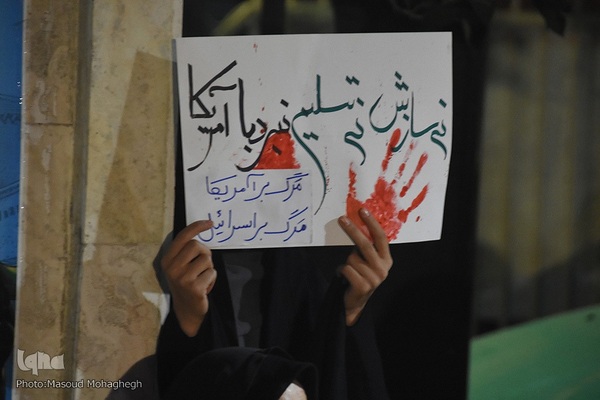 نی سازش نی تسلیم نبرد با آمریکا
مرگ بر آمریکا
مرگ بر اسرائیل
iqna
Photo:Masoud Mohaghegh